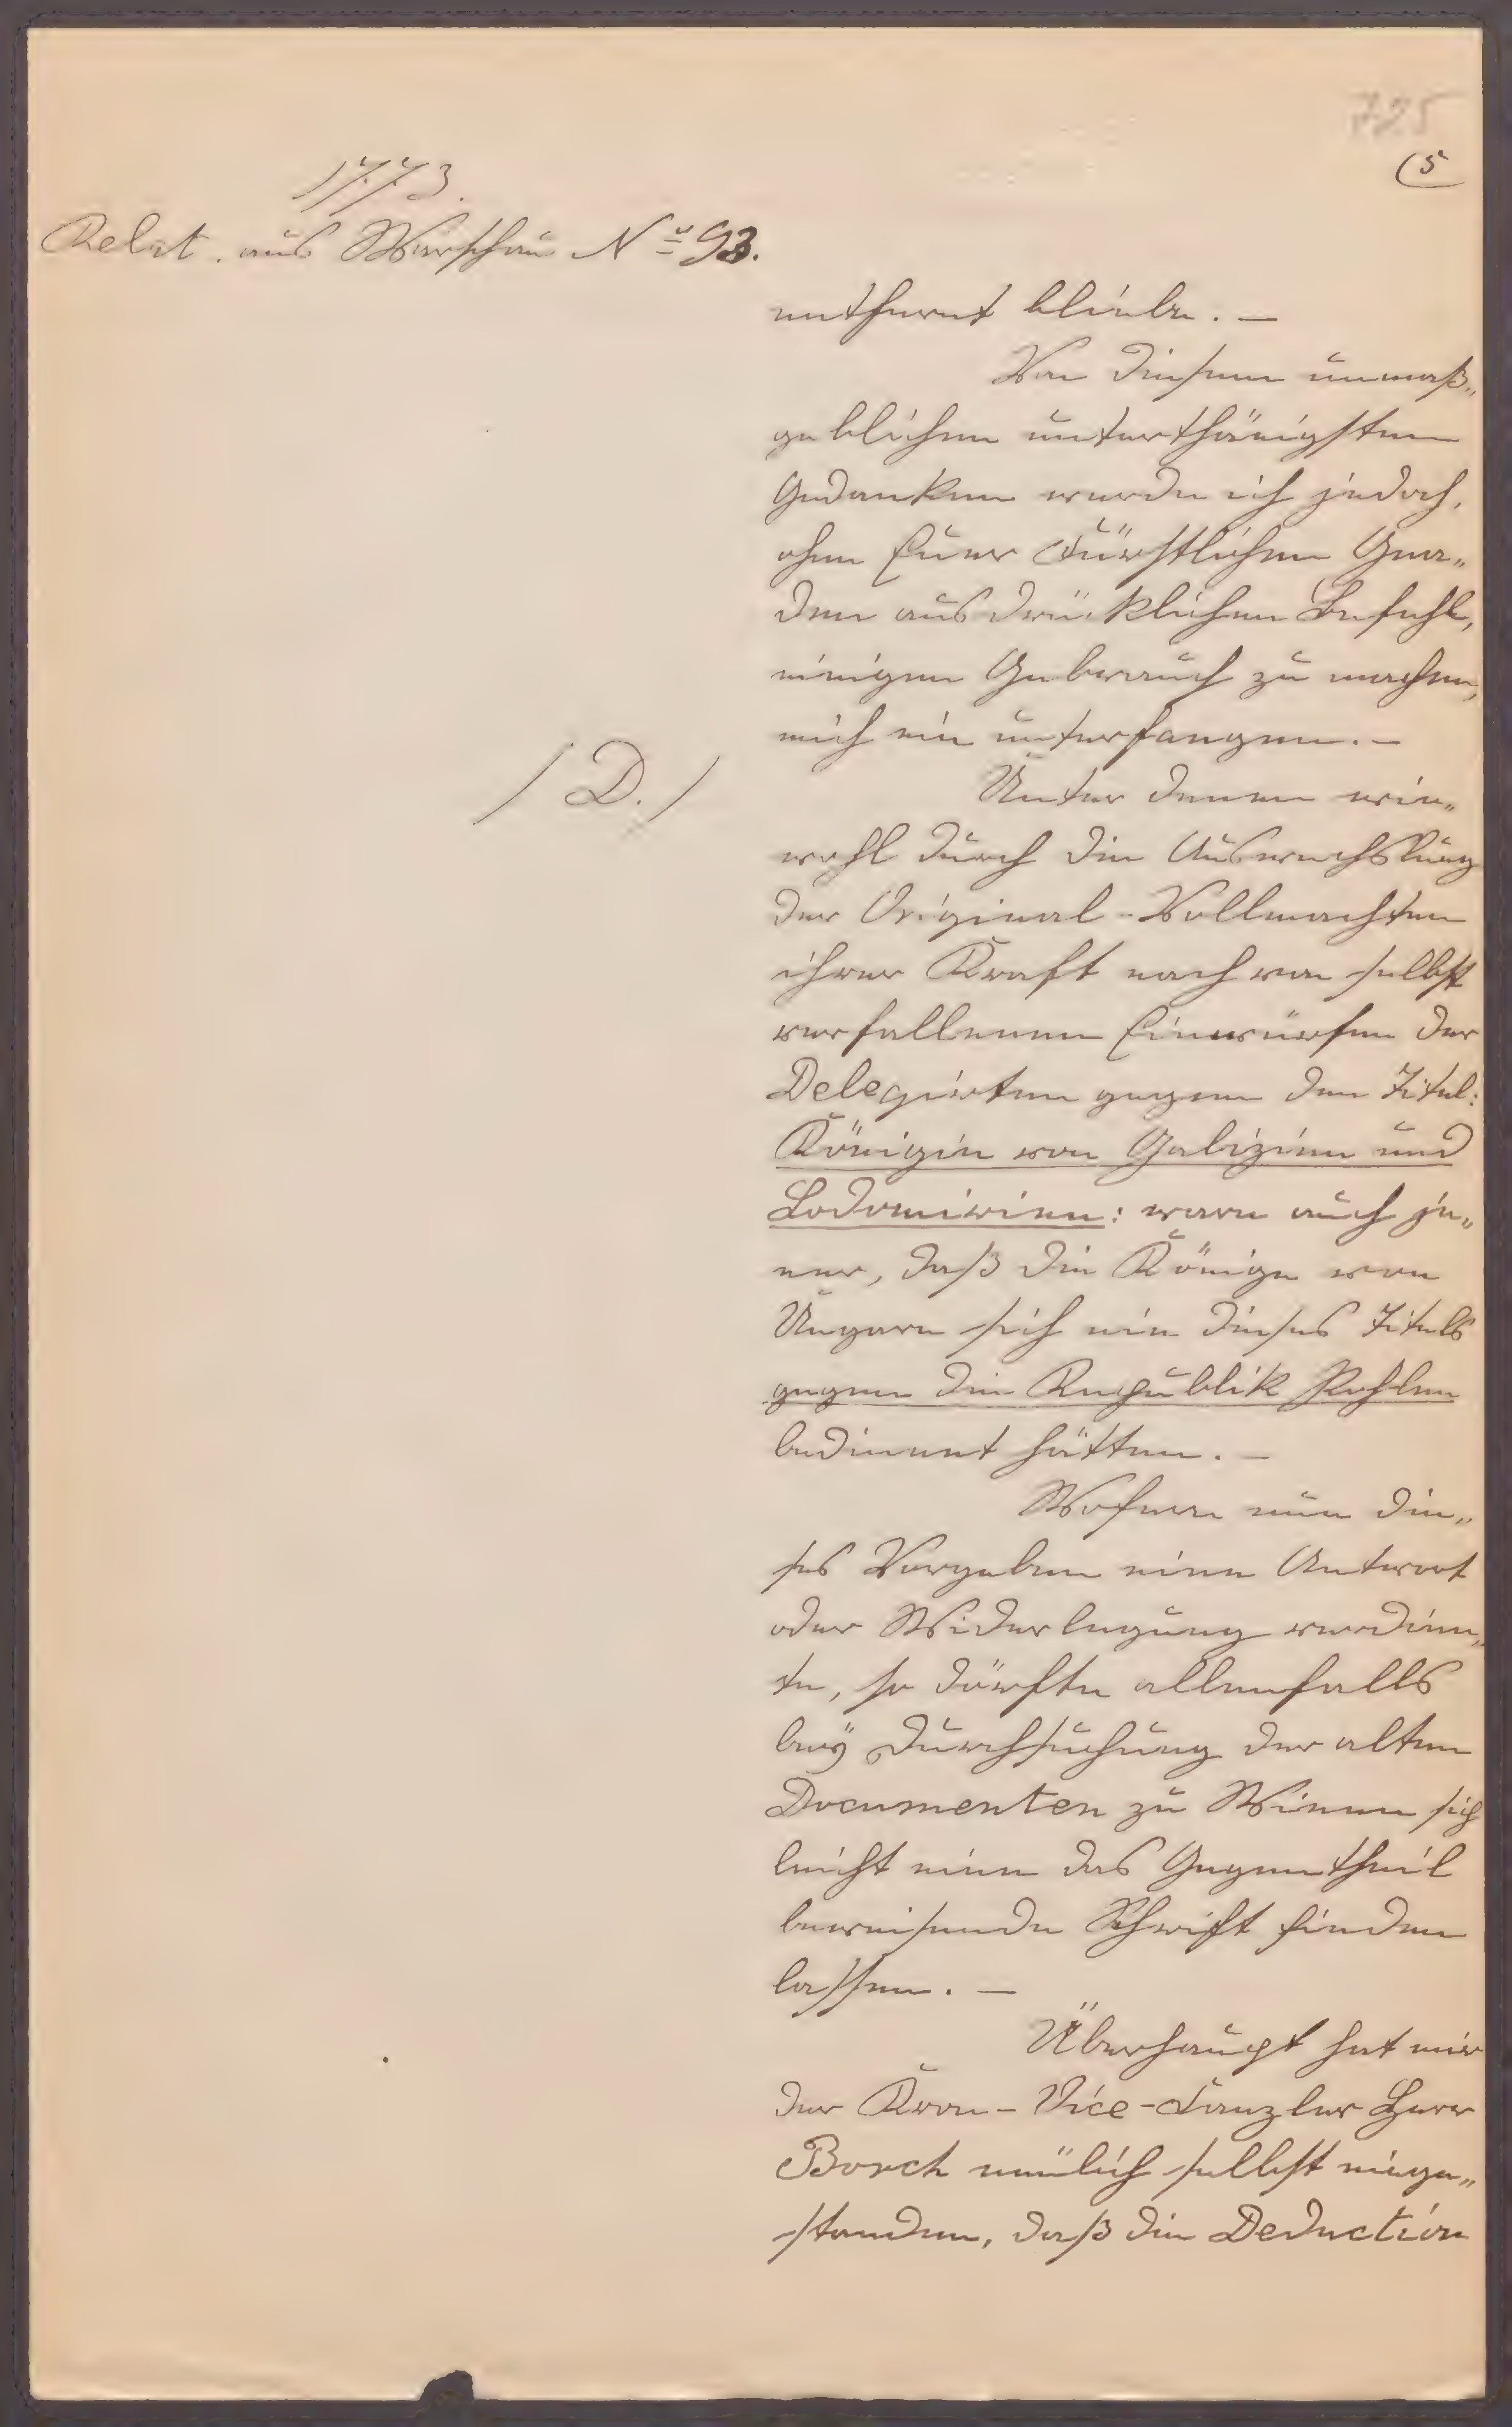 725
(5
1773.
Relat. aus Warschau No 93.
entfernt bliebe. —
Von diesem unmaß„
geblichen unterthänigsten
Gedanken werde ich jedoch,
ohne Euer Fürstlichen Gna„
den ausdrücklichen Befehl,
einigen Gebrauch zu machen,
mich nie unterfangen. —
/ D. /
Unter denen wie„
wohl durch die Auswechslung
der Original-Vollmachten
ihrer Kraft nach von selbst
verfallenen Einwürfen der
Delegirten gegen den Titul:
Königin von Galizien und
Lodomirien: ware auch je„
ner, daß die Könige von
Ungarn sich nie dieses Tituls
gegen die Republik Pohlen
bedienet hätten. —
Woferne nun die„
ses Vorgeben eine Antwort
oder Widerlegung verdien„
te, so dörfte allenfalls
beÿ Durchsuchung der alten
Documenten zu Wienn sich
leicht eine das Gegentheil
beweisende Schrift finden
lassen. —
Überhaupt hat mir
der Kron-Vice-Canzler Herr
Borch neülich selbst einge„
standen, daß die Deduction